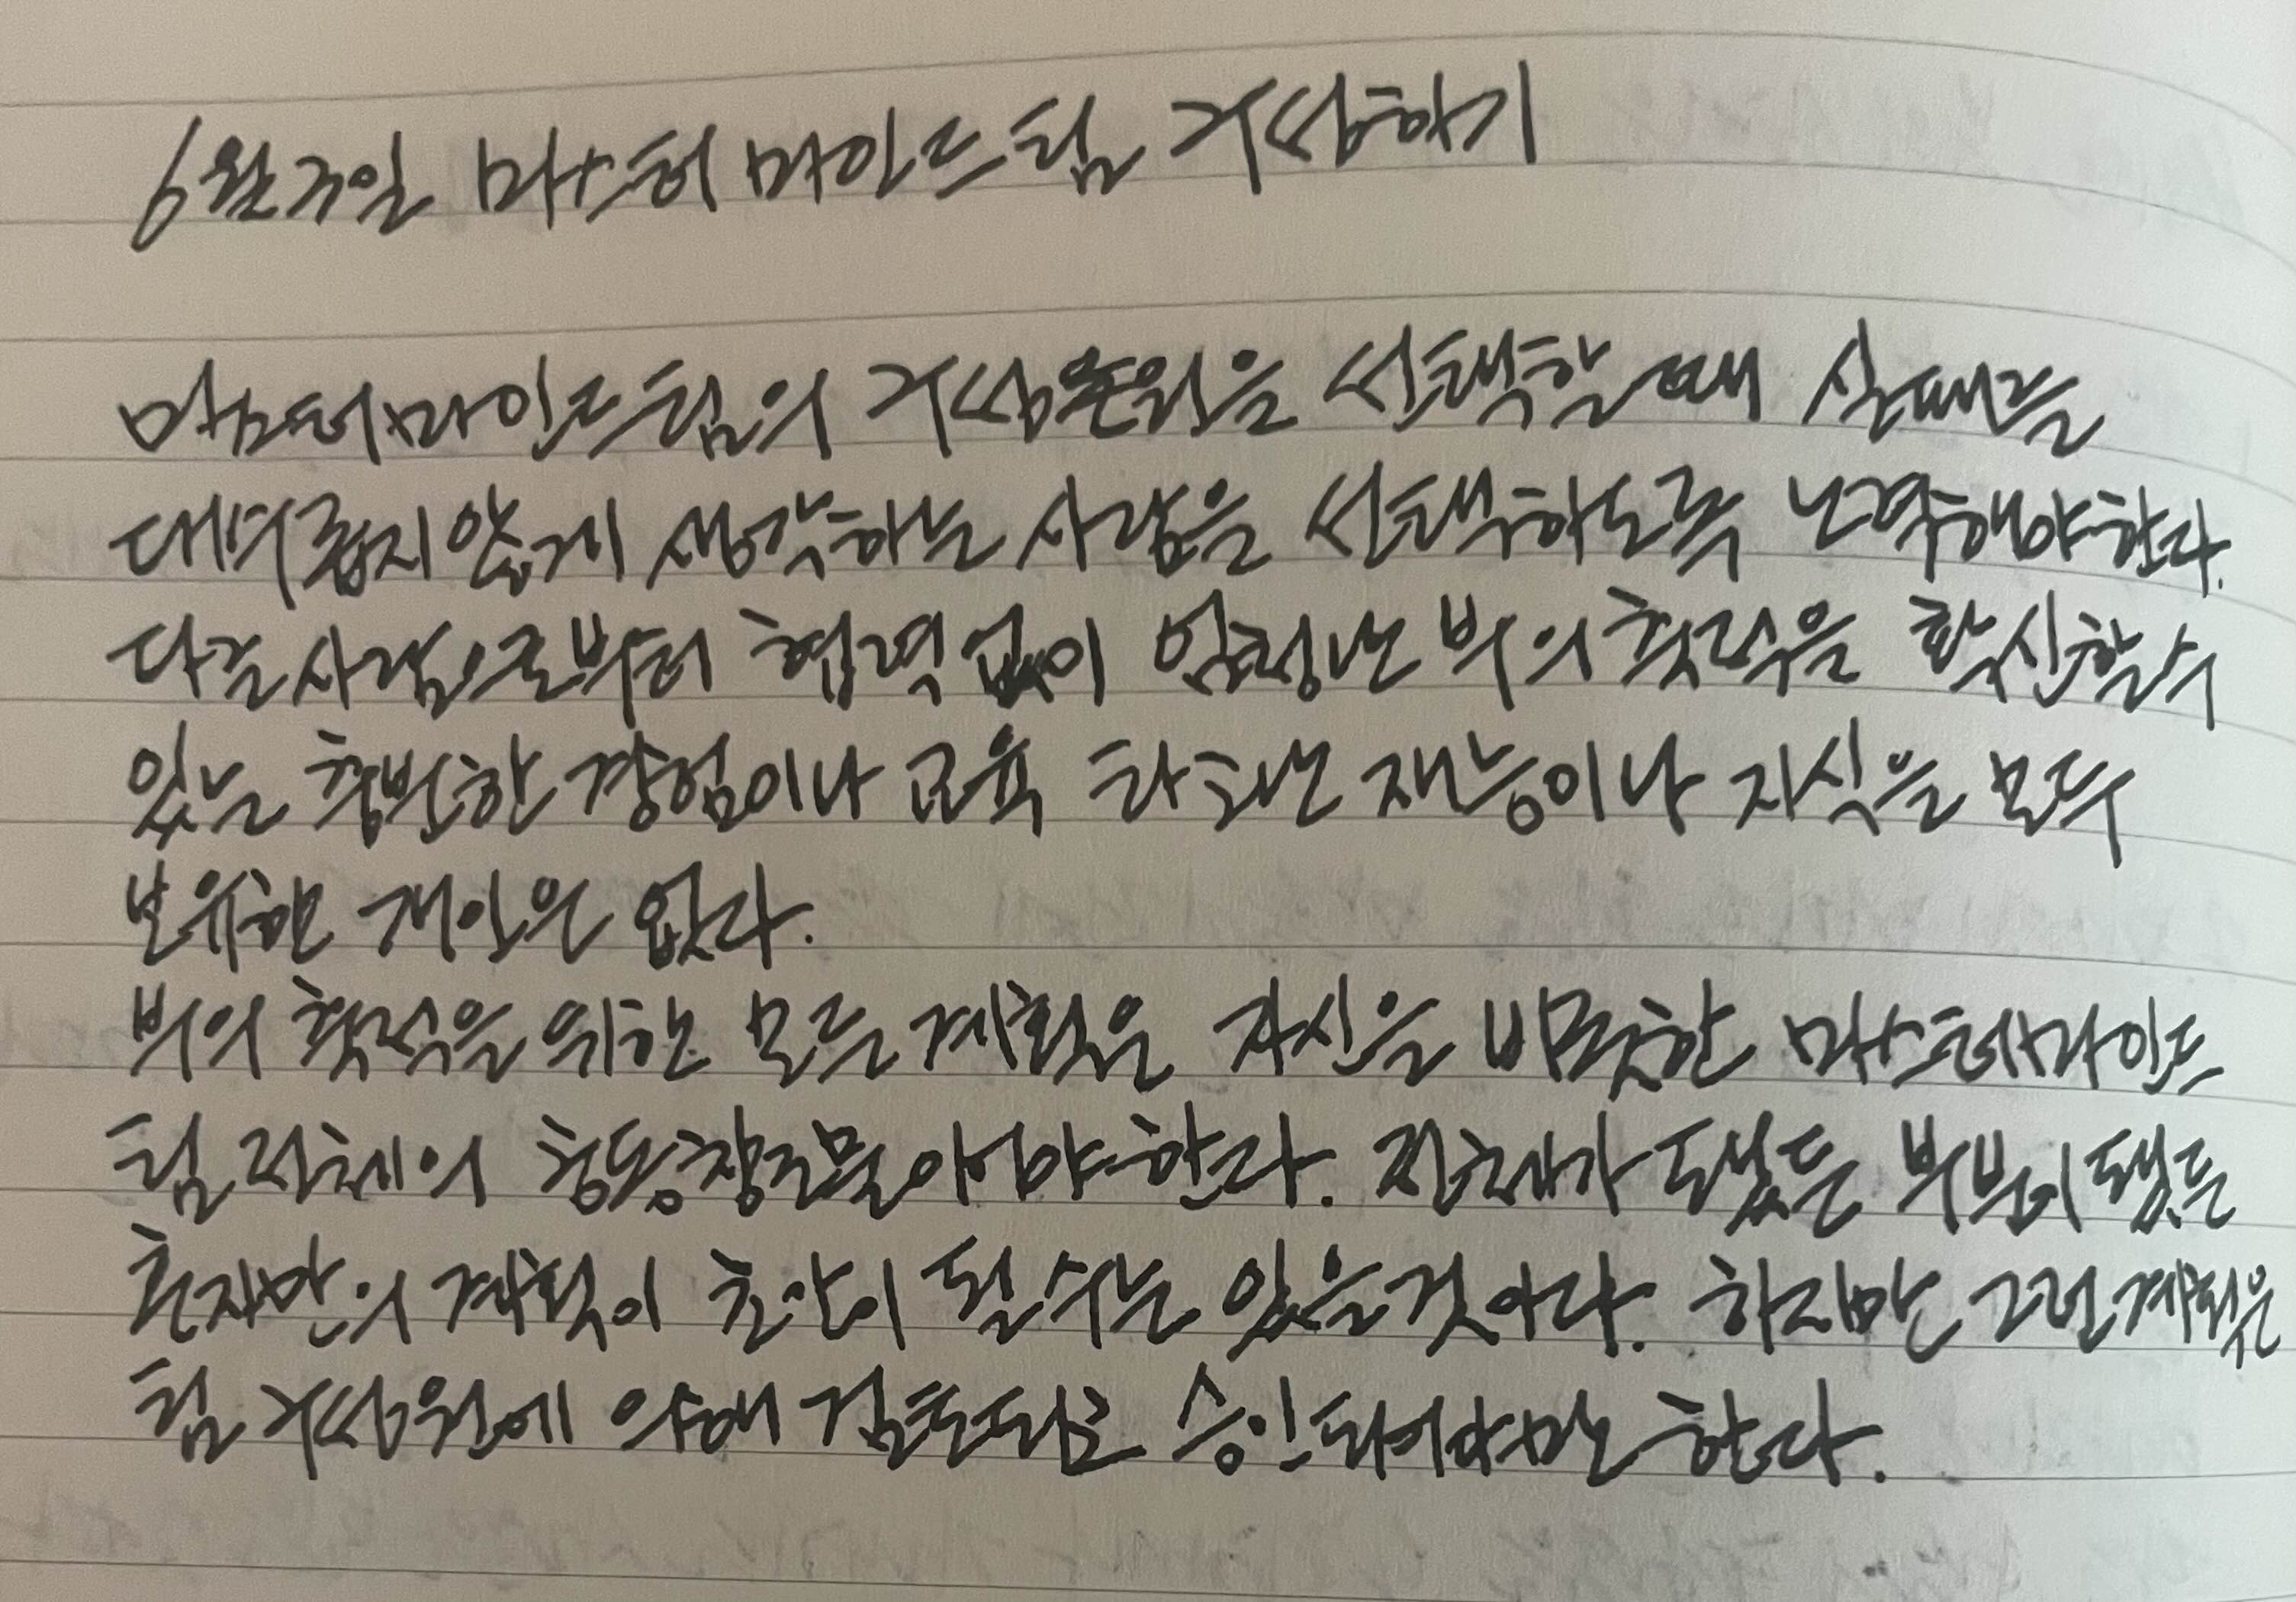 6월 3일 마스터 마인드 팀 구성하기
마스터 마인드 팀의 구성원을 선택할 때 실패를
대수롭지 않게 생각하는 사람을 선택하도록 노력해야 한다.
다른 사람으로부터 협력 없이 엄청난 부의 축적을 확신할 수
있는 충분한 경험이나 교육 타고난 재능이나 지식을 모두
보유한 개인은 없다.
부의 축적을 위한 모든 계획은 자신을 비롯한 마스터 마인드
팀 전체의 공동창조물이어야 한다. 전체가 됐든 부분이 됐든
혼자만의 계획이 초안이 될 수는 있을 것이다. 하지만 그런 계획은
팀 구성원에 의해 검토되고 승인되어야만 한다.